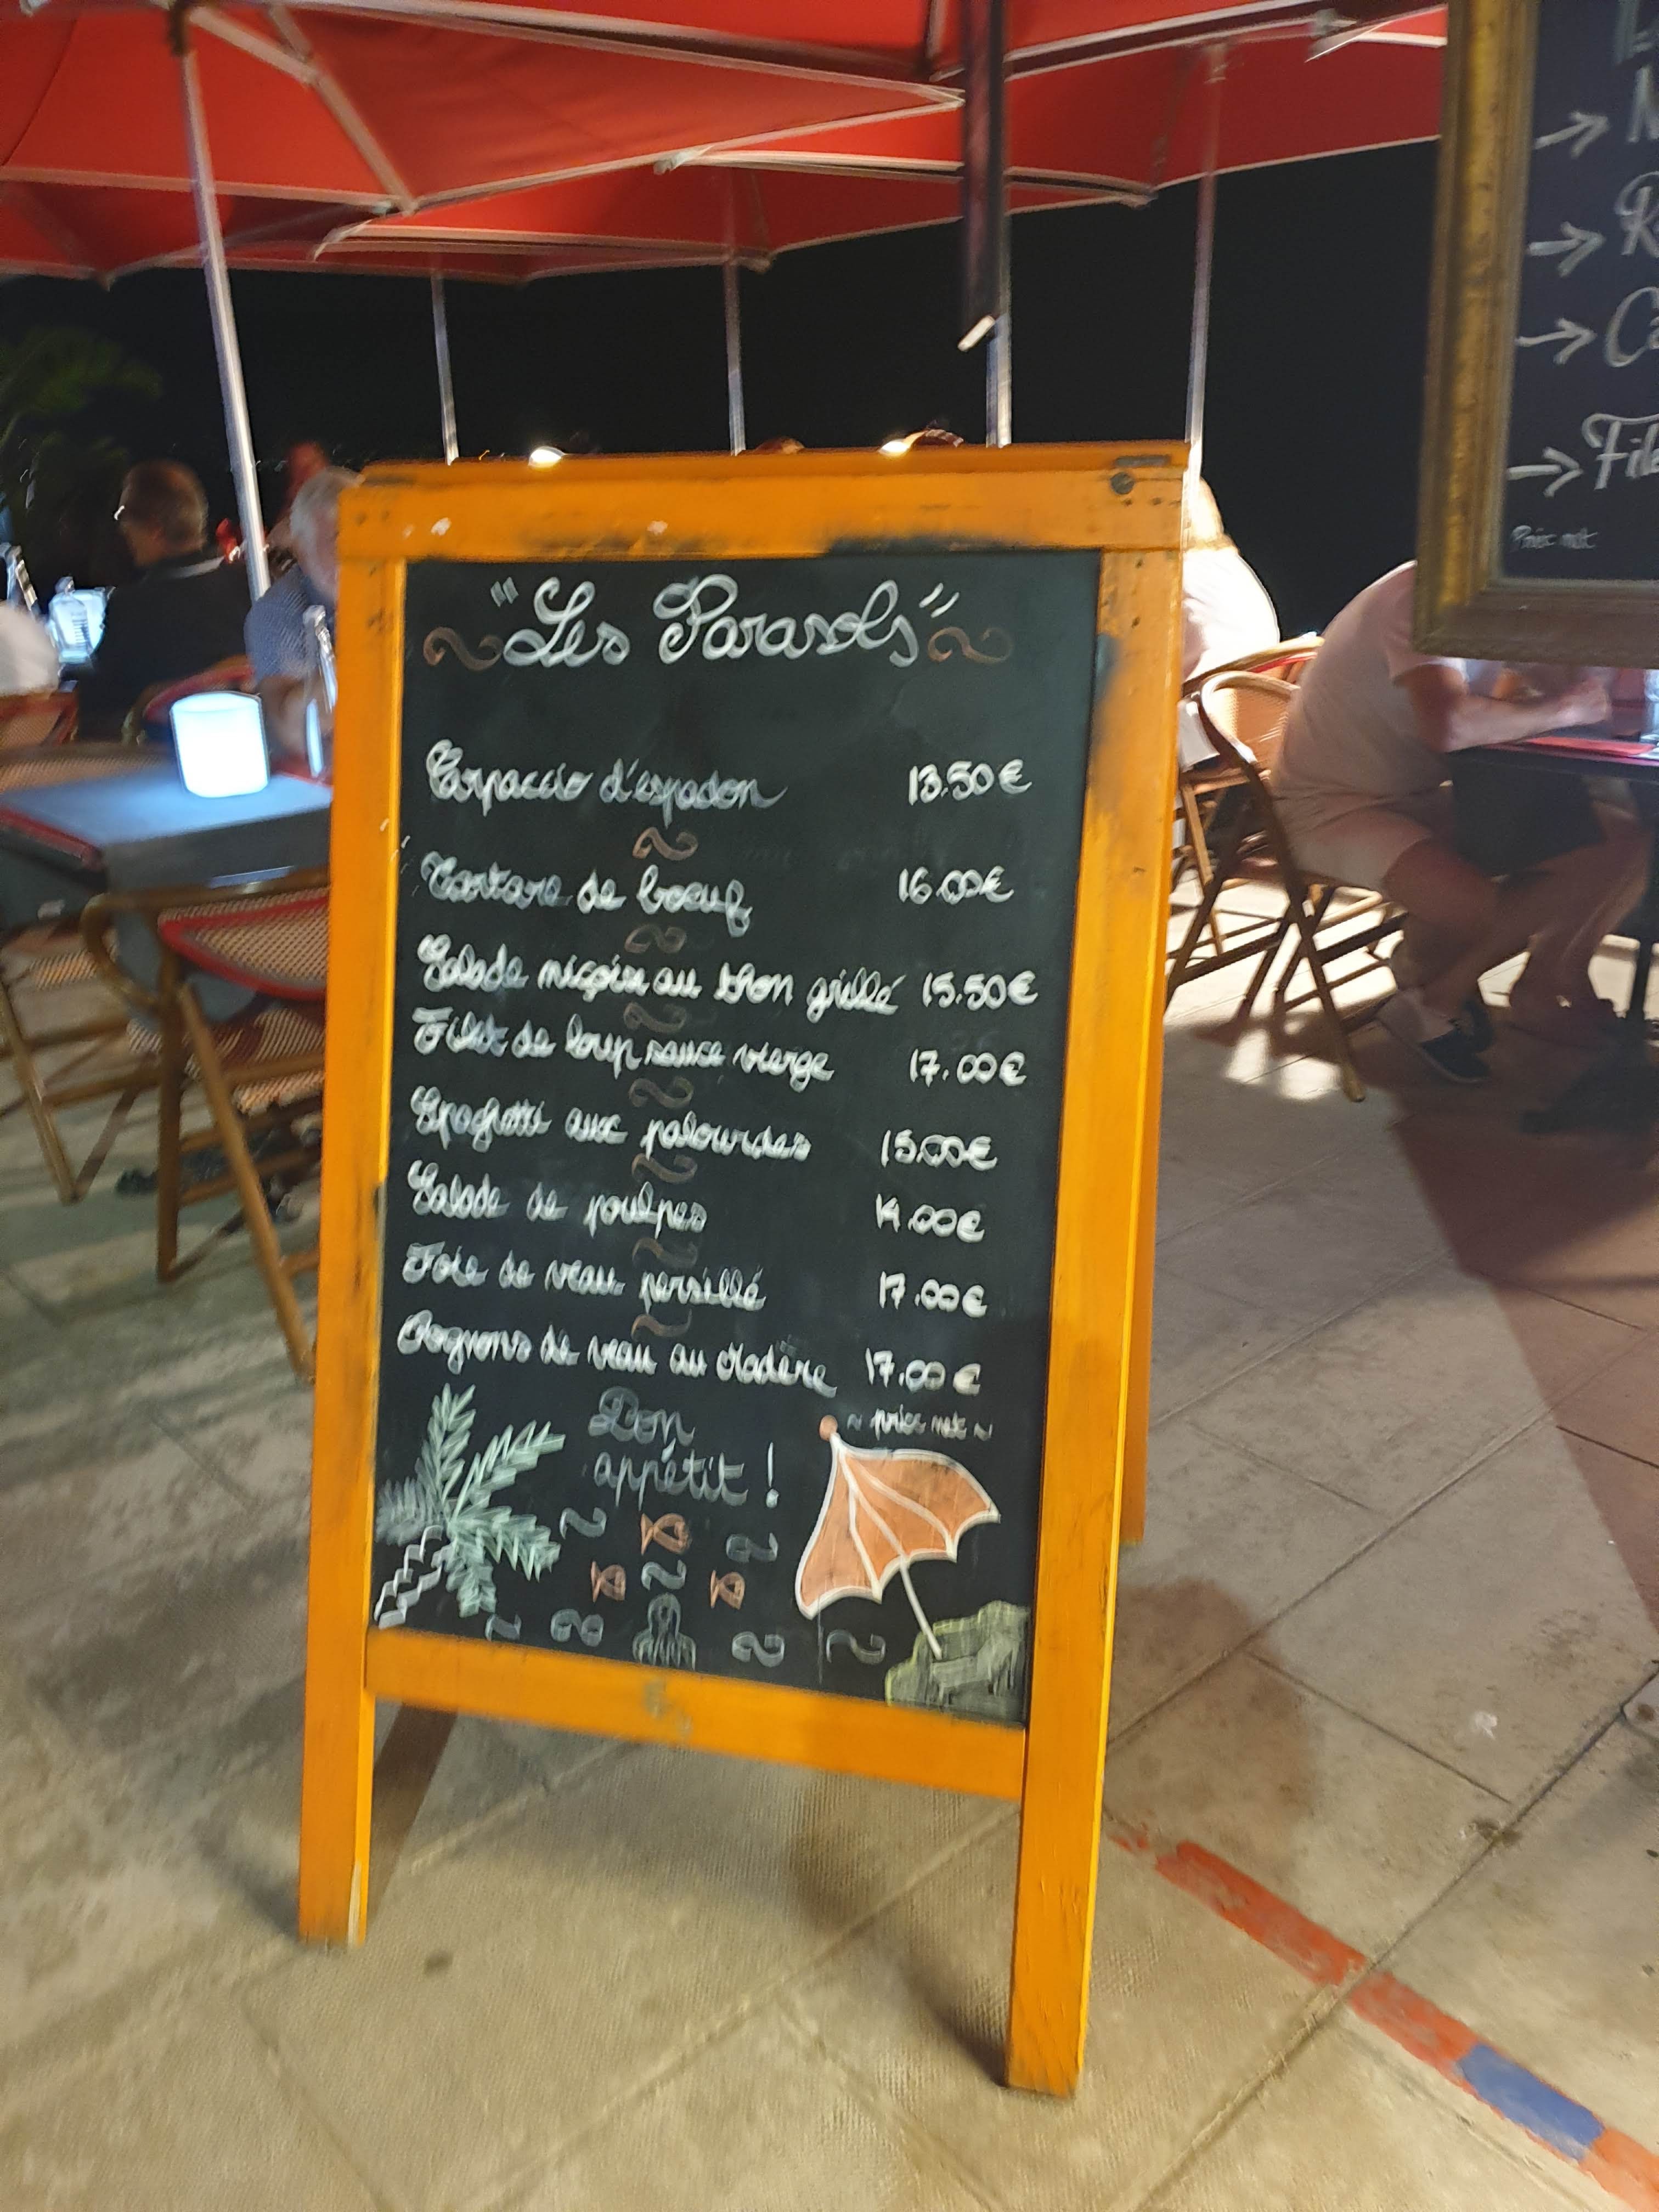 "Les Parasols"
Carpaccio d'espadon 13.50€
Tartare de boeuf 16.00€
Salade niçoise au thon grillé 15.50€
Filet de loup sauce vierge 17.00€
Spaghetti aux palourdes 15.00€
Salade de poulpes 14.00€
Foie de veau persillé 17.00€
Rognons de veau au Madère 17.00€
~ prix net ~
Bon
appétit !
→
→
→
→
Prix net